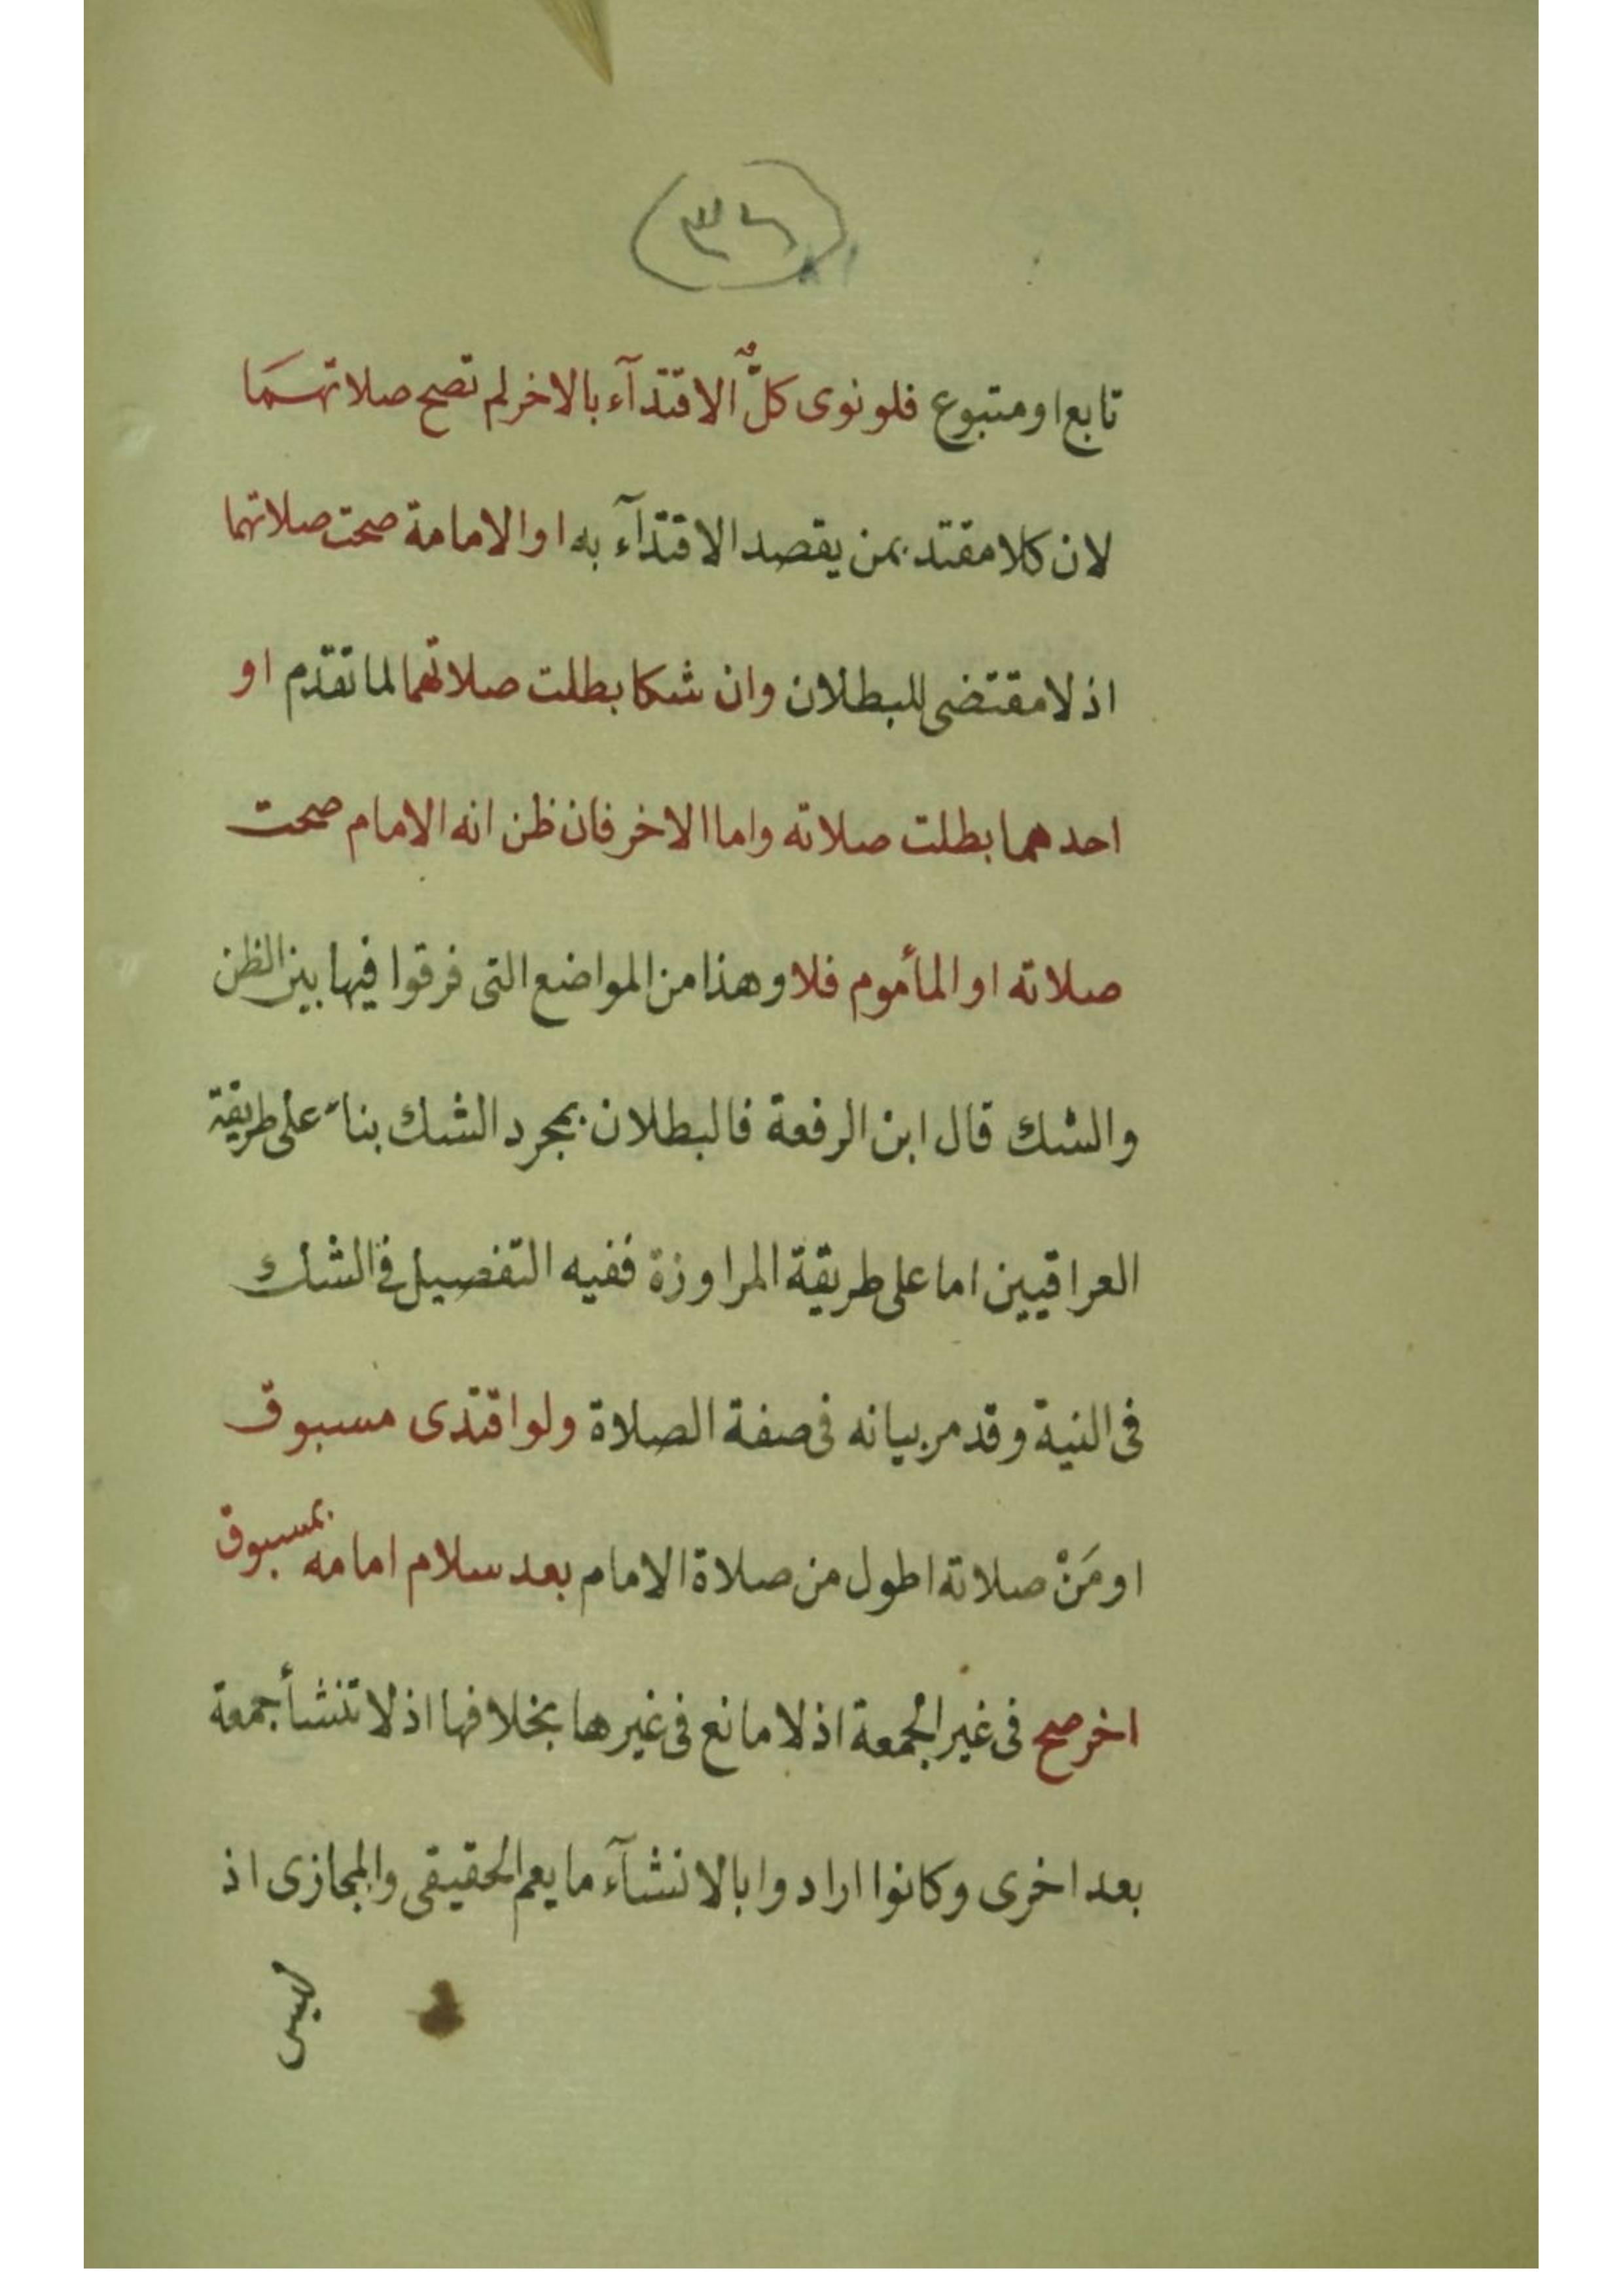 ٣٦
تابع او متبوع فلو نوى كلٌّ الاقتدآء بالاخر لم تصح صلاتهمَا
لان كلا مقتد بمن يقصد الاقتدآء به او الامامة صحت صلاتهما
اذ لا مقتضى للبطلان وان شكا بطلت صلاتهما لما تقدم او
احدهما بطلت صلاته واما الاخر فان ظن انه الامام صحت
صلاته او المأموم فلا وهذا من المواضع التى فرقوا فيها بين الظن
والشك قال ابن الرفعة فالبطلان بمجرد الشك بناء على طريقة
العراقيين اما على طريقة المراوزة ففيه التفصيل فى الشك
فى النية وقد مر بيانه فى صفة الصلاة ولو اقتدى مسبوق
او مَنْ صلاته اطول من صلاة الامام بعد سلام امامه بمسبوق
اخر صح فى غير الجمعة اذ لا مانع فى غيرها بخلافها اذ لا تنشأ جمعة
بعد اخرى وكانوا ارادوا بالانشآء ما يعم الحقيقى والمجازى اذ
ليس